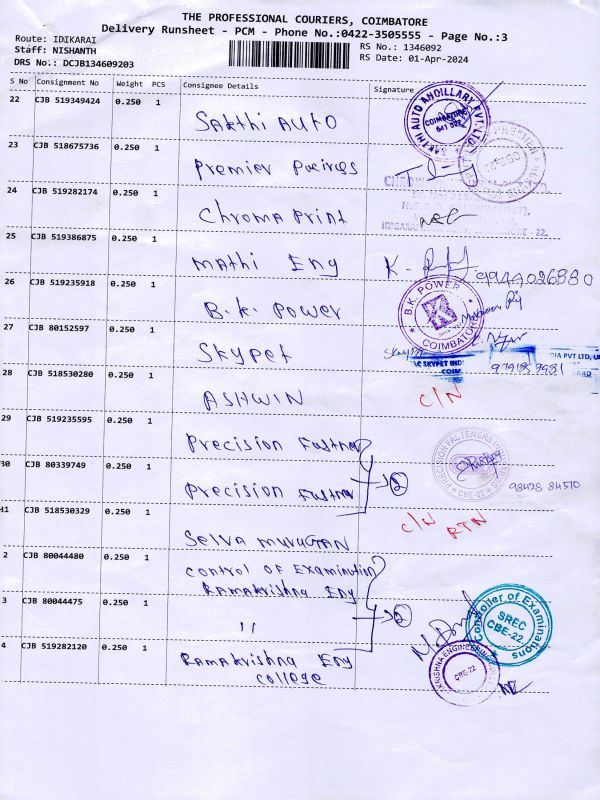 THE PROFESSIONAL COURIERS, COIMBATORE
Delivery Runsheet - PCM - Phone No.:0422-3505555 - Page No.:3
Route: IDIKARAI
RS No.: 1346092
Staff: NISHANTH
RS Date: 01-Apr-2024
DRS No.: DCJB134609203
S No Consignment No Weight PCS Consignee Details Signature
22 CJB 519349424 0.250 1
Sakthi AUTO
SAKTHI AUTO ANCILLARY PVT. LTD. COIMBATORE 641 022
23 CJB 518675736 0.250 1
Premier
24 CJB 519282174 0.250 1
Chroma Print
25 CJB 519386875 0.250 1
Mathi Eng
K.
26 CJB 519235918 0.250 1
B.K. Power
B.K. POWER K COIMBATORE
27 CJB 80152597 0.250 1
Skypet
28 CJB 518530280 0.250 1
ASHWIN
C/N
29 CJB 519235595 0.250 1
Precision Fastner
30 CJB 80339749 0.250 1
Precision Fastner
2
PRECISION FASTENERS CBE-22
98428 84510
31 CJB 518530329 0.250 1
Selva Murugan
C/N RTN
2 CJB 80044480 0.250 1
Control OF Examination
Ramakrishna Eng
3 CJB 80044475 0.250 1
"
2
Controller of Examinations SREC CBE-22
4 CJB 519282120 0.250 1
Ramakrishna Eng
College
KRISHNA ENGINEERING CBE-22